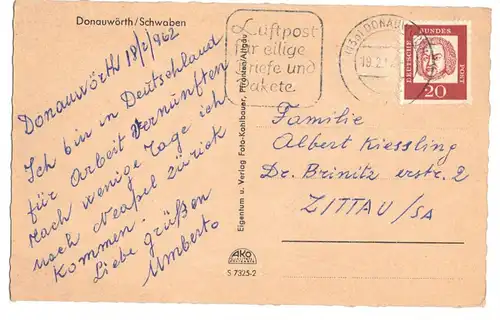 Donauwörth/Schwaben
Donauwörth 18/2/962
Ich bin in Deutschland
für Arbeit Vernünften
Nach wenige Tage ich
nach Neapel zurück
kommen.
Liebe grüßen
Umberto
Eigentum u. Verlag Foto-Kohlbauer, Pfronten/Allgäu
AKO
S 7325-2
Luftpost
für eilige
Briefe und
Pakete
DONAUWÖRTH
19.2.
DEUTSCHE
BUNDES
POST
20
Familie
Albert Kiessling
Dr. Brinitz erstr. 2
ZITTAU/SA